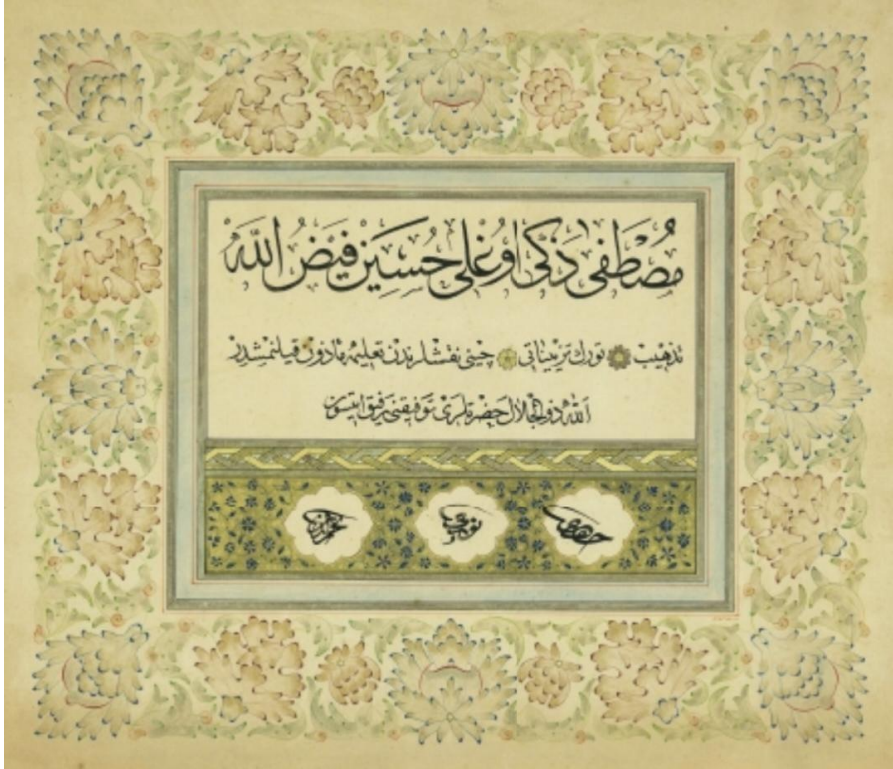 مُصْطَفٰى ذَكى اوُغْلى حُسَيِنْ فَيَضُ اللّٰهْ
تذهيب تورك تزييناتى چينى نقشلرندن تعليمه مأذون قيلنمشدر
اَللّٰه ذوالجلال حضرتلرى توفيقنى رفيق ايتسون